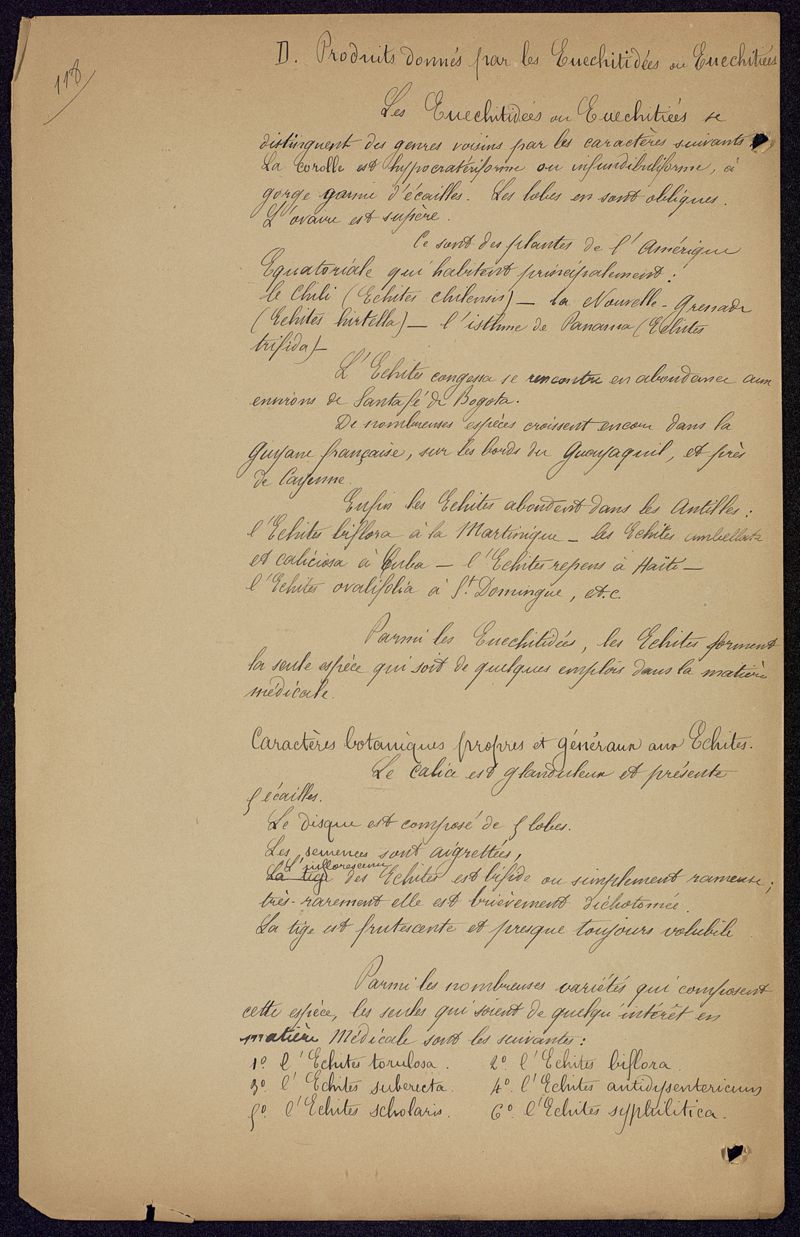 118
D. Produits donnés par les Euechitidées ou Euechitiées
Les Euechitidées ou Euechitiées se
distinguent des genres voisins par les caractères suivants
La corolle est hypocratériforme ou infundibuliforme, à
gorge garnie d'écailles. Les lobes en sont obliques.
L'ovaire est supère.
Ce sont des plantes de l'Amérique
Equatoriale qui habitent principalement :
le Chili (Echites chilensis) — la Nouvelle-Grenade
(Echites hirtella) — l'isthme de Panama (Echites
trifida) —
L'Echites congesta se rencontre en abondance aux
environs de Santa fé de Bogota.
De nombreuses espèces croissent encore dans la
Guyane française, sur les bords du Guayaquil, et près
de Cayenne.
Enfin les Echites abondent dans les Antilles :
l'Echites biflora à la Martinique — les Echites umbellata
et caliciosa à Cuba — l'Echites repens à Haïti —
l'Echites ovalifolia à St. Domingue, etc.
Parmi les Euechitidées, les Echites forment
la seule espèce qui soit de quelques emplois dans la matière
médicale.
Caractères botaniques propres et généraux aux Echites.
Le calice est glanduleux et présente
5 écailles.
Le disque est composé de 5 lobes.
Les semences sont aigrettées,
L'inflorescence
La tige des Echites est bifide ou simplement rameuse ;
très-rarement elle est brièvement dichotomée.
La tige est frutescente et presque toujours volubile
Parmi les nombreuses variétés qui composent
cette espèce, les seules qui soient de quelqu'intérêt en
matière Médicale sont les suivantes :
1° l'Echites torulosa. 2° l'Echites biflora.
3° l'Echites suberecta. 4° l'Echites antidysentericum
5° l'Echites scholaris. 6° l'Echites syphilitica.